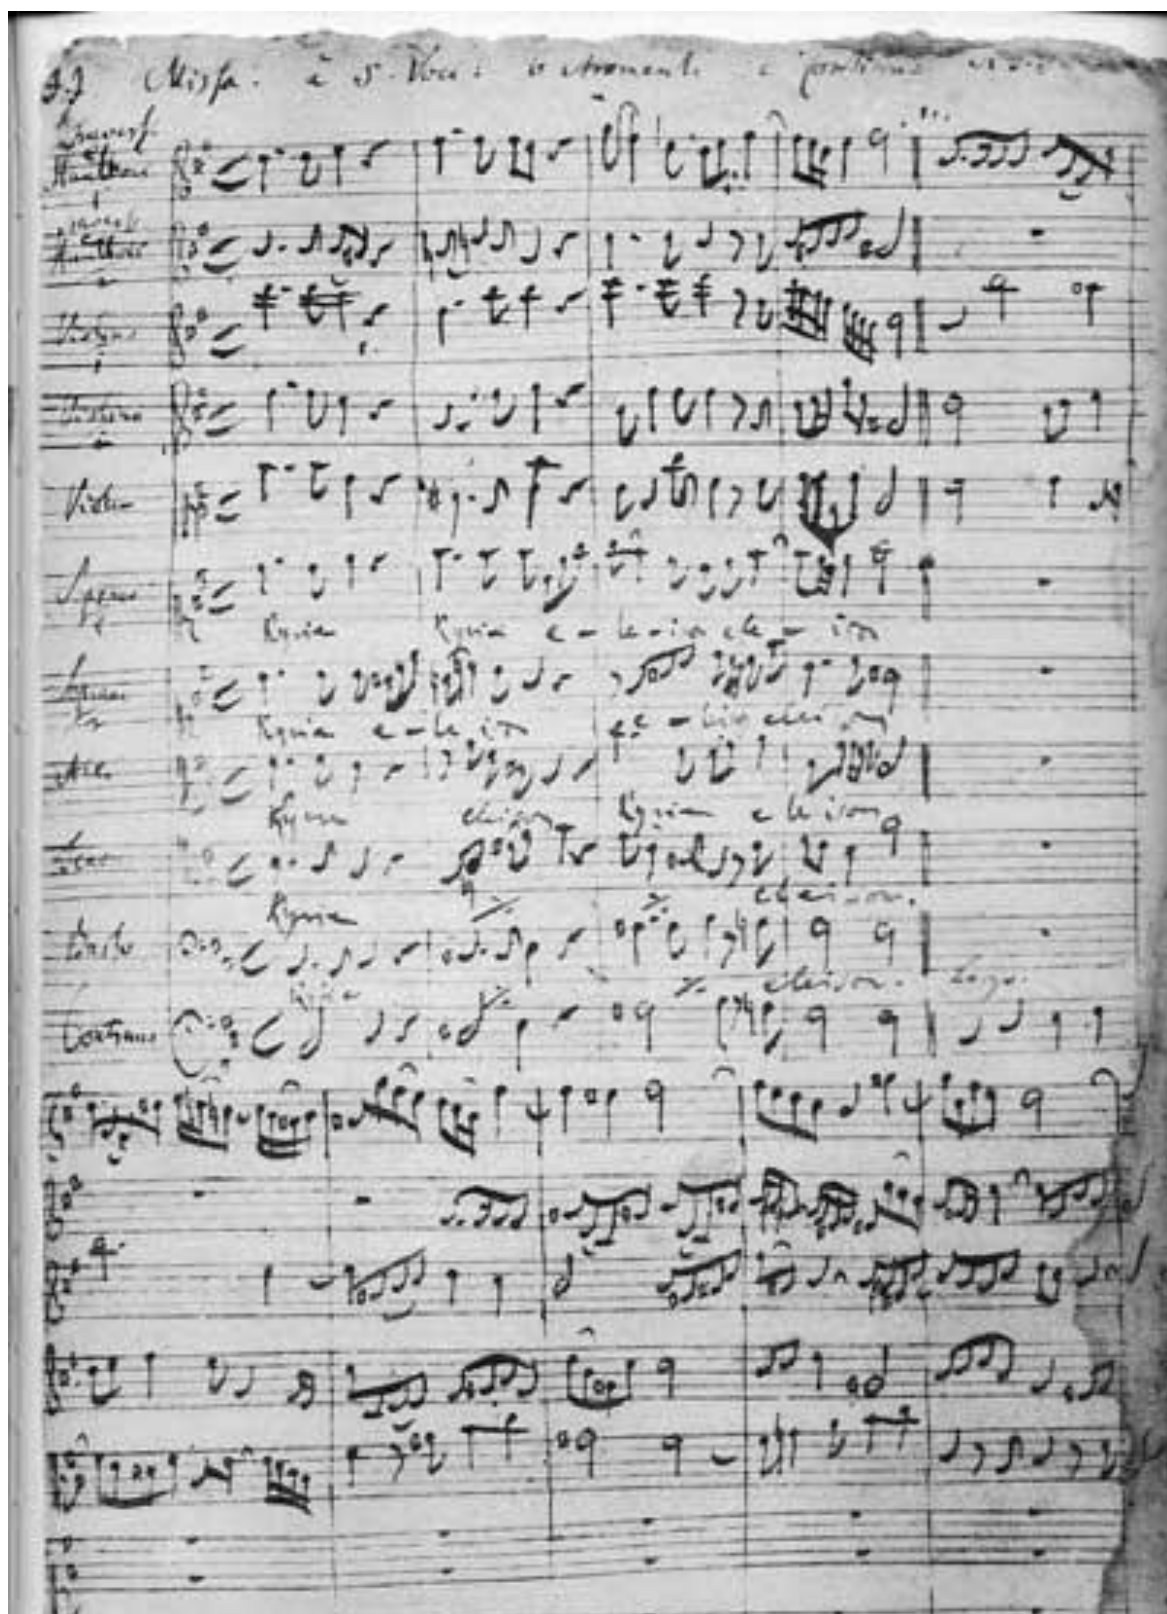 J.J. Missa. à 5. Voci. 6 stromenti. e Continuo
Travers.
Hautbois
1
Travers
Hautbois
2
Violino
1
Violino
2
Viola
Soprano
1
Kyrie Kyrie e-le-ison ele-ison
Soprano
2
Kyrie e-le-ison eleison
Alto
Kyrie eleison Kyrie e le ison
Tenor
Kyrie ./. eleison.
Basso
Kyrie ./. ./. eleison. Largo.
Continuo